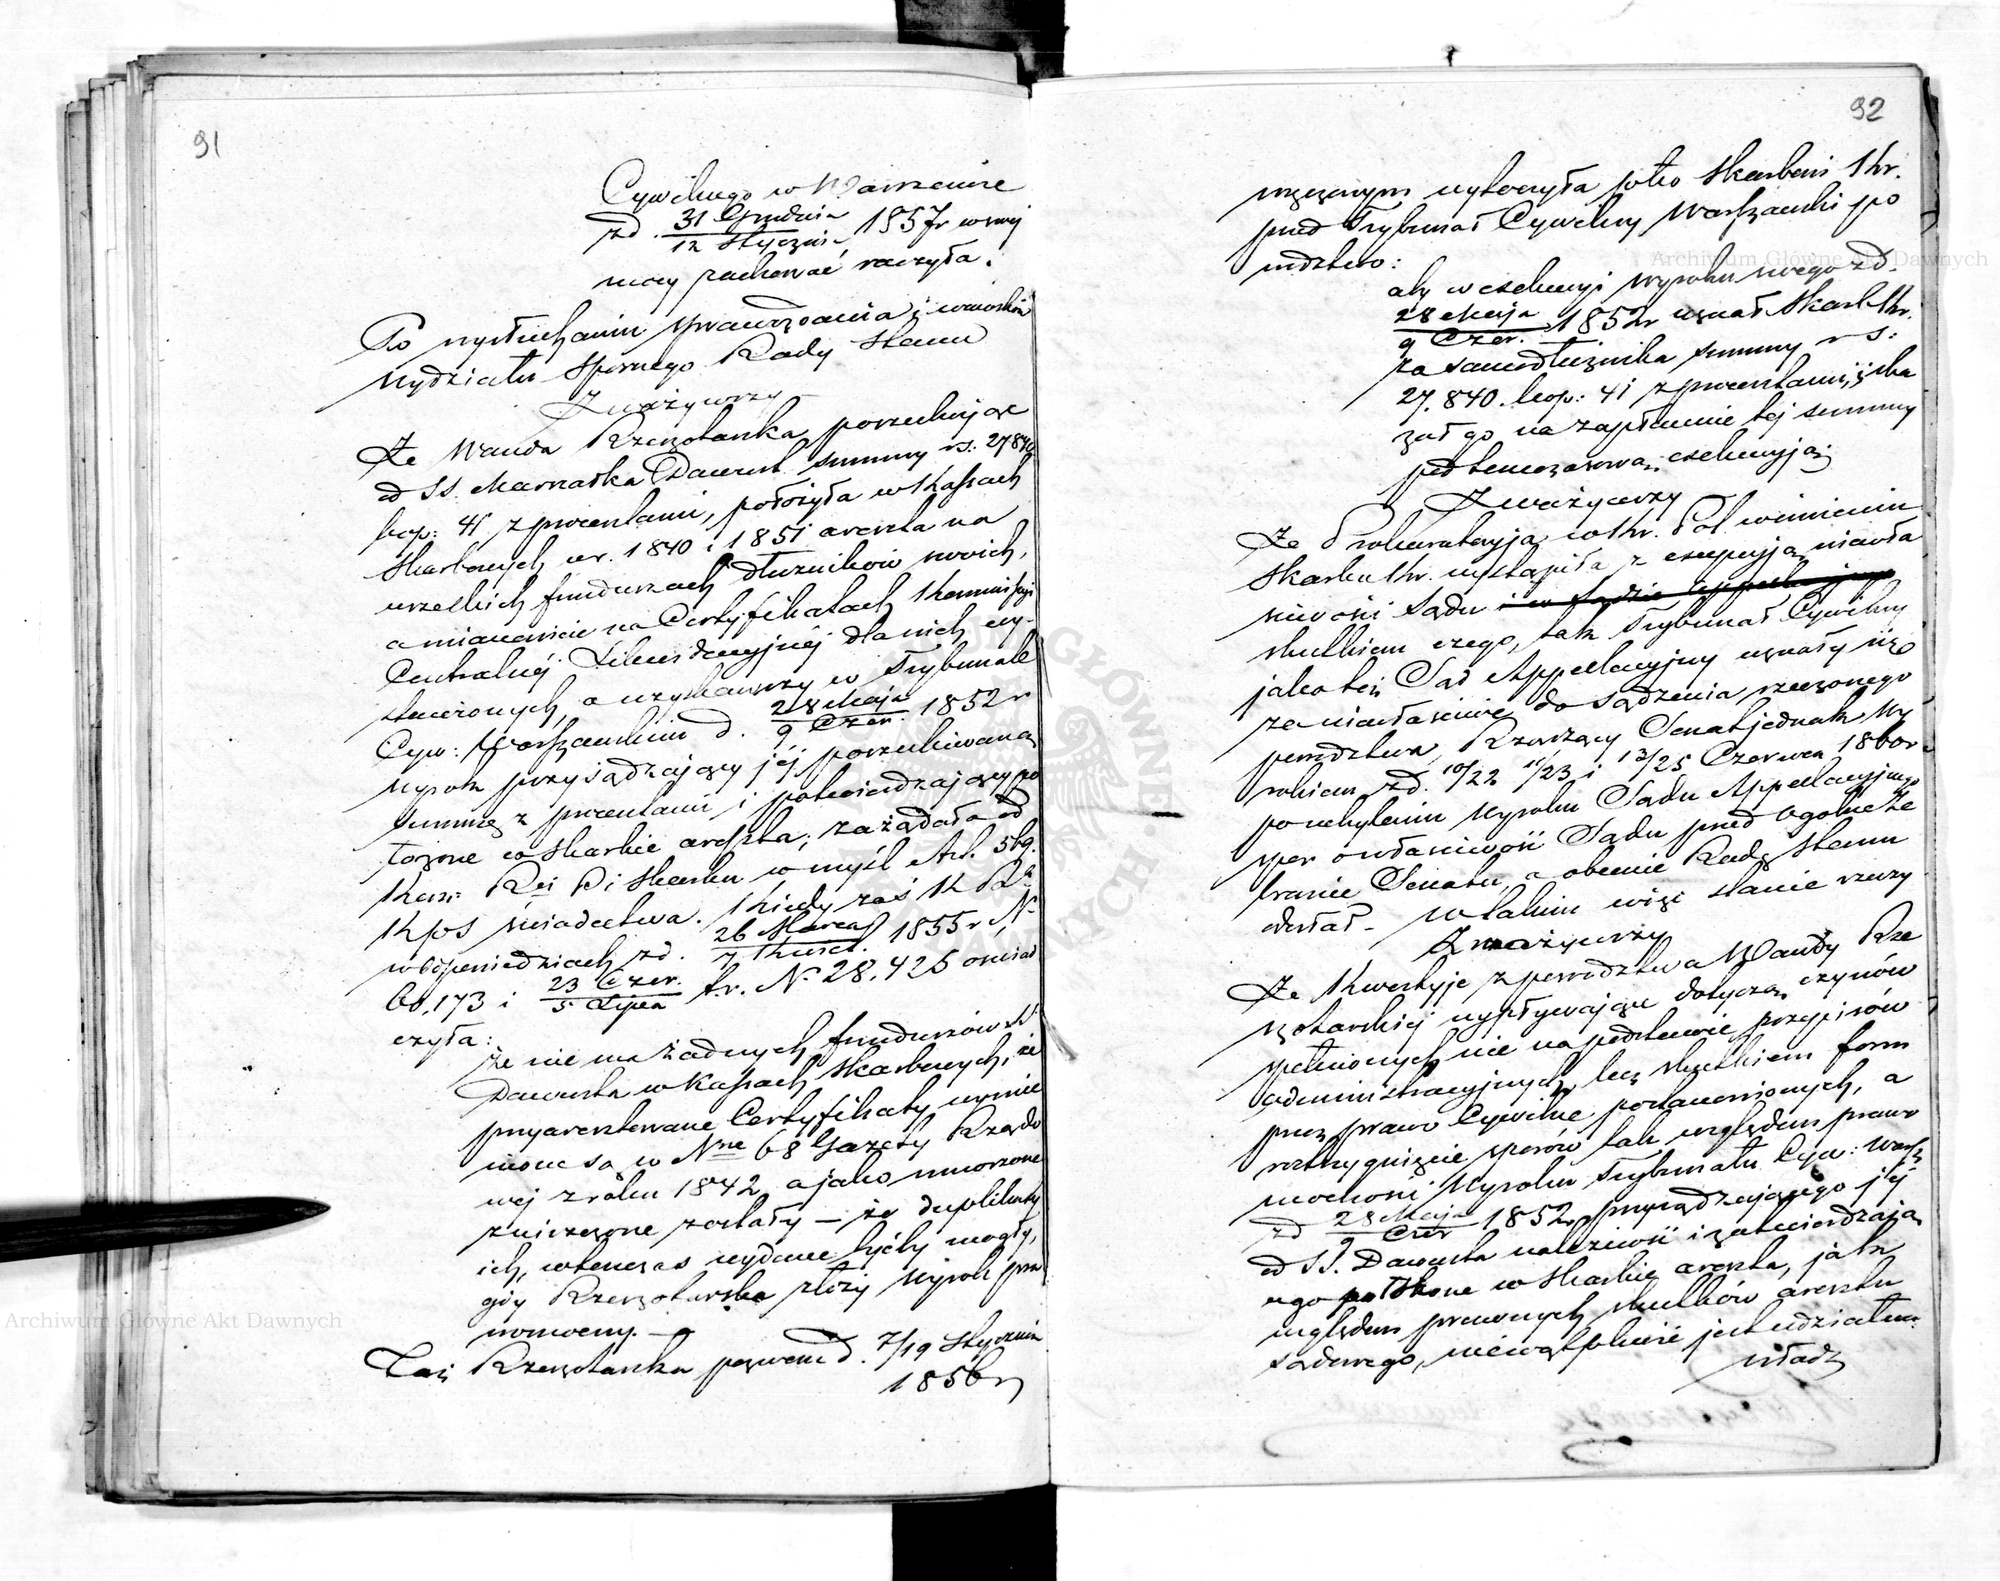 91
Cywilnego w Warszawie
zd. 31 Grudnia / 12 Stycznia 1857r w swej
mocy zachować raczyła.
Po wysłuchaniu sprawozdania i wniosków
Wydziału Spornego Rady Stanu
Zważywszy
Że Wanda Rzeszotarska poszukując
od SS. Marszałka Davoust summy rs: 27840
kop: 41 z procentami, położyła w Kassach
Skarbowych w r. 1840 i 1851 areszta na
wszelkich funduszach dłużników swoich,
a mianowicie na Certyfikatach Kommissyi
Centralnéj Likwidacyjnéj dla nich wy-
stawionych, a uzyskawszy w Trybunale
Cyw: Warszawskim d. 28 Maja / 9 Czer. 1852 r
wyrok przysądzający jéj poszukiwaną
summę z procentami i potwierdzający po
łożone w Skarbie areszta, zażądała od
Kom: Rei Pi Skarbu w myśl Art. 569.
KPS świadectwa. Kiedy zaś K R
w odpowiedziach zd. 26 Marca / 7 Kwiet. 1855 r N.
60,173 i 23 Czer. / 5 Lipca t.r. N. 28,426 oświad
czyła:
że nie ma żadnych funduszów SS.
Davousta w Kassach Skarbowych, że
przyaresztowane Certyfikaty wymie
nione są w Nrze 68 Gazety Rządo
wej z roku 1842 a jako umorzone
zniszczone zostały – że duplikaty
ich, wtenczas wydane byćby mogły,
gdy Rzeszotarska złoży wyrok pra
womocny. –
Taż Rzeszotarska pozwem d. 7/19 Stycznia
1856 r
92
wręczonym wytoczyła przeciwko Skarbowi Kr.
przed Trybunał Cywilny Warszawski po
wództwo:
aby w exekucyi wyroku swego zd.
28 Maja / 9 Czer. 1852r uznał Skarb Kr.
za samodłużnika summy rs:
27,840. kop: 41 z procentami, i ska
zał go na zapłacenie tej summy
pod tymczasową exekucyją;
Zważywszy
Że Prokuratoryja w Kr. Pol. w imieniu
Skarbu Kr. wystąpiła z excepcyją niewła
ściwości Sądu i w Sądzie Appellacyjnym
skutkiem czego, tak Trybunał Cywilny
jako też Sąd Appellacyjny uznały się
za niewłaściwe do sądzenia rzeczonego
powództwa, Rządzący Senat jednak wy
rokiem zd. 10/22 11/23 i 13/25 Czerwca 1860r
po uchyleniu wyroku Sądu Appellacyjnego
spór o właściwość Sądu przed Ogólne Ze
branie Senatu, a obecnie Radę Stanu
odesłał. – W takim więc stanie rzeczy
Zważywszy
Że Kwestyje z powództwa Wandy Rze
szotarskiej wypływające dotyczą czynów
spełnionych nie na podstawie przepisów
administracyjnych, lecz skutkiem form
przez prawo Cywilne postanowionych, a
rozstrzygnięcie sporów tak względem prawo
mocności Wyroku Trybunału Cyw: Warsz
zd 28 Maja / 9 Czer 1852, przysądzającego jéj
od SS. Davousta należność i zatwierdzają
cego położone w Skarbie areszta, jak
względem prawnych skutków aresztu
sądowego, niewątpliwie jest udziałem
władz
Archiwum Główne Akt Dawnych
Archiwum Główne Akt Dawnych